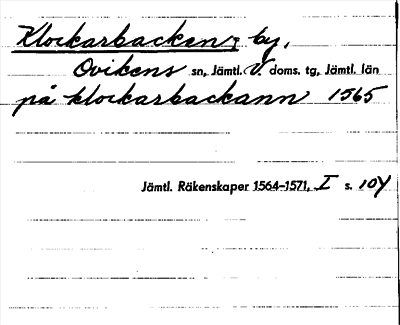 Klockarbacken, by,
Ovikens sn, Jämtl. V. doms. tg, Jämtl. län
på klockarbackann 1565
Jämtl. Räkenskaper 1564-1571, I s. 104